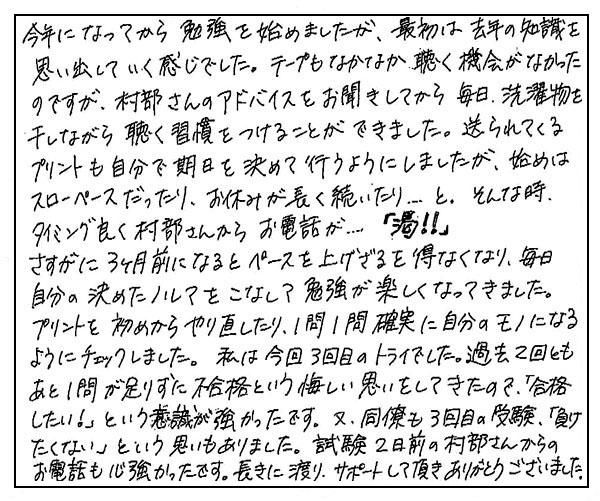 今年になってから 勉強を始めましたが、最初は去年の知識を
思い出していく感じでした。テープもなかなか聴く機会がなかった
のですが、村部さんのアドバイスをお聞きしてから毎日、洗濯物を
干しながら聴く習慣をつけることができました。送られてくる
プリントも自分で期日を決めて行うようにしましたが、始めは
スローペースだったり、お休みが長く続いたり…と。そんな時、
タイミング良く村部さんからお電話が…「渇!!」
さすがに3ヶ月前になるとペースを上げざるを得なくなり、毎日
自分の決めたノルマをこなして勉強が楽しくなってきました。
プリントを初めからやり直したり、1問1問確実に自分のモノになる
ようにチェックしました。私は今回3回目のトライでした。過去2回とも
あと1問が足りずに不合格という悔しい思いをしてきたので、「合格
したい!」という意識が強かったです。又、同僚も3回目の受験、「負け
たくない」という思いもありました。試験2日前の村部さんからの
お電話も心強かったです。長きに渡り、サポートして頂きありがとうございました。